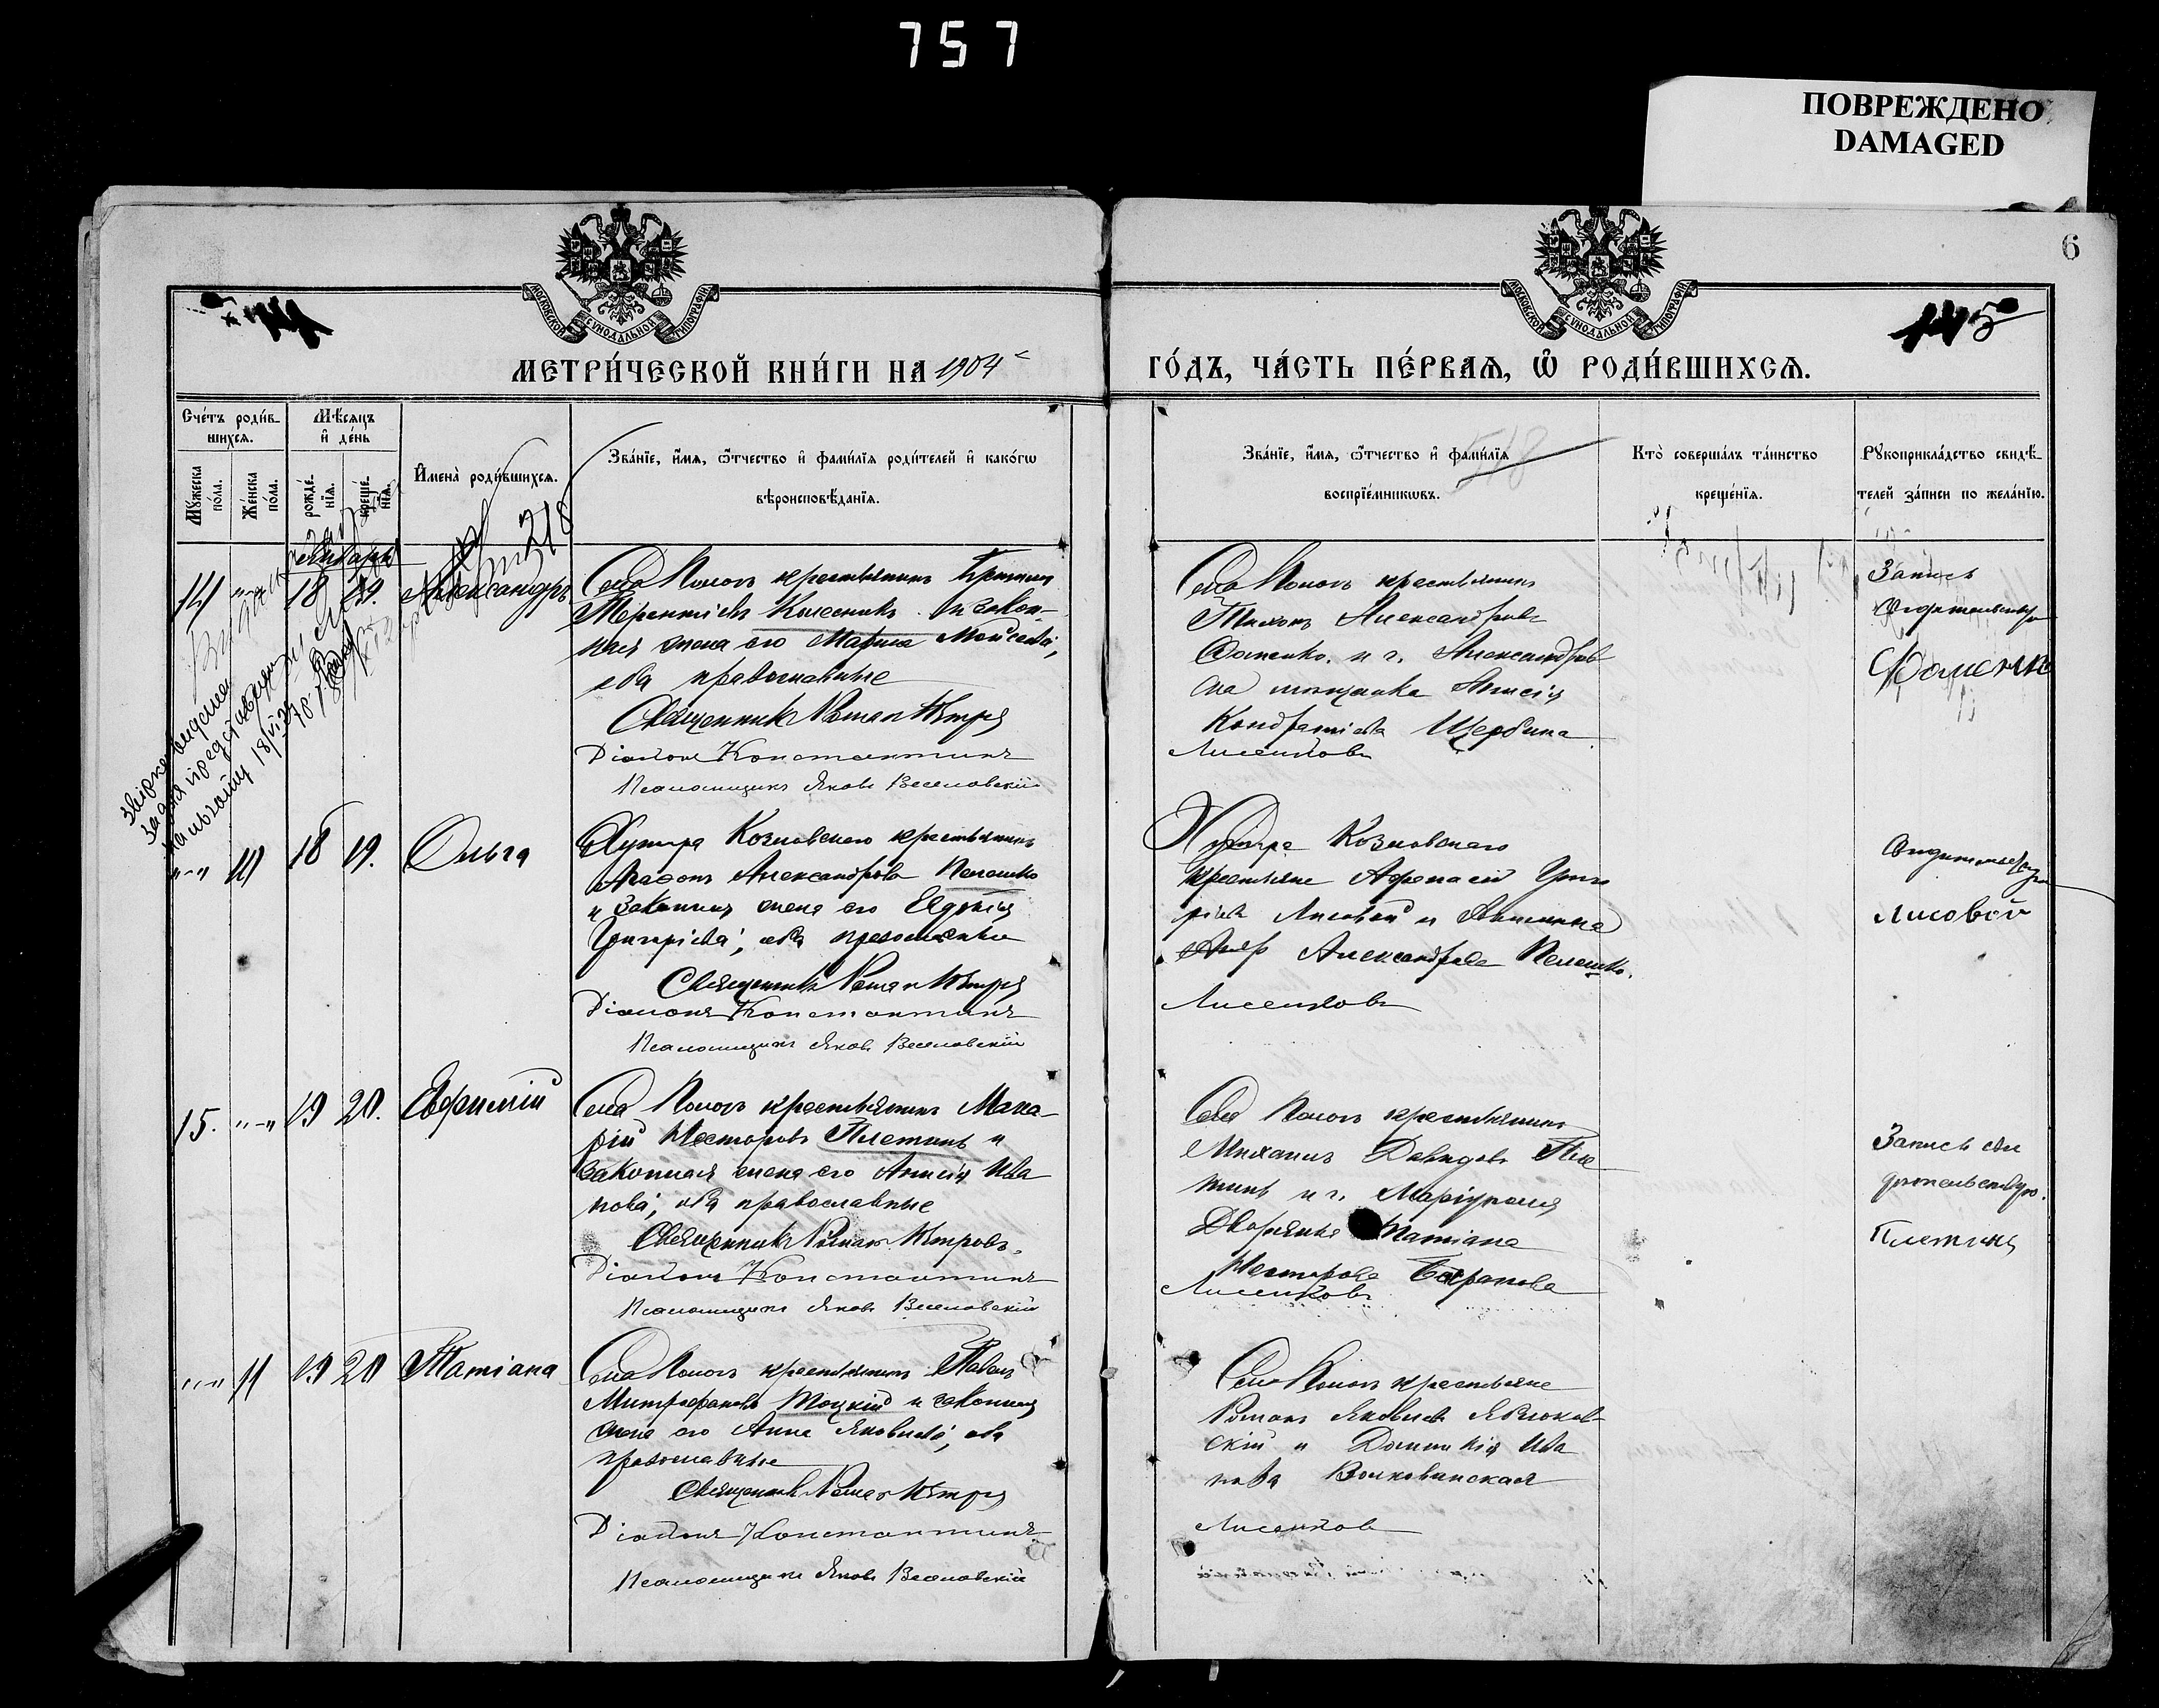 757
ПОВРЕЖДЕНО
DAMAGED
6
МОСКОВСКОЙ СѴНОДАЛЬНОЙ ТИПОГРАФІИ
МОСКОВСКОЙ СѴНОДАЛЬНОЙ ТИПОГРАФІИ
115
МЕТРИ́ЧЕСКОЙ КНИ́ГИ НА 1904
ГО́ДЪ, ЧА́СТЬ ПЕ́РВАѦ, Ѡ҆ РОДИ́ВШИХСѦ.
Сче́тъ роди́в-
шихсѧ.
Мѣ́сѧцъ
и҆ де́нь
Мꙋ́жеска по́ла.
Же́нска по́ла.
рожде́-
нїѧ.
креще́-
нїѧ.
И҆мена̀ роди́вшихсѧ.
Зва́нїе, и҆́мѧ, ѻ҆́тчество и҆ фами́лїѧ роди́телей и҆ како́гѡ
вѣроисповѣ́данїѧ.
Зва́нїе, и҆́мѧ, ѻ҆́тчество и҆ фами́лїѧ
воспрїе́мникѡвъ.
548
Кто̀ соверша́лъ та́инство
креще́нїѧ.
Рꙋкоприкла́дство свидѣ́-
телей за́писи по жела́нїю.
218
Январь
14 "-" 18 19. Александръ
Села Пологъ крестьянинъ
Терентіевъ Колесникъ и закон-
ная жена его Марѳа Моисеева,
оба православные
Священникъ Роман Петровъ
Діаконъ Константинъ
Псаломщикъ Яковъ Веселовскій
Села Пологъ крестьянинъ
Тихонъ Александровъ
Фоменко. и г. Александров-
ска мещанка Анисія
Кондратіева Щербина
Лисенковъ
Запись
Фоменко
"-" 10 18 19. Ольга
Хутора Козловского крестьянинъ
Агафонъ Александровъ Пелешко
и законная жена его Евдокія
Григоріева, оба православные
Священникъ Роман Петровъ
Діаконъ Константинъ
Псаломщикъ Яковъ Веселовскій
Хутора Козловского
крестьяне Афанасій Григо
ріевъ Лисовой и
Александрова Пелешко.
Лисенковъ
Лисовой
15. "-" 19 20. Евфимій
Села Пологъ крестьянинъ Мака-
рій Несторовъ Плетинь и
законная жена его Анисія Ива
нова, оба православные
Священникъ Роман Петровъ.
Діаконъ Константинъ
Псаломщикъ Яковъ Веселовскій
Села Пологъ крестьянинъ
Михаилъ Давидовъ Пле
тинь и г. Маріуполя
Дворянка Татіана
Несторова Баранова
Лисенковъ
Запись сви
дѣтельствую.
"-" 11 19 20 Татіана
Села Пологъ крестьянинъ Павелъ
Митрофановъ Тоцкій и законная
жена его Анна Яковлева, оба
православные
Священникъ Роман Петровъ
Діаконъ Константинъ
Псаломщикъ Яковъ Веселовскій
Села Пологъ крестьяне
Романъ Яковлевъ Яблонов-
скій и Домникія Ива
нова Волкованская
Лисенковъ